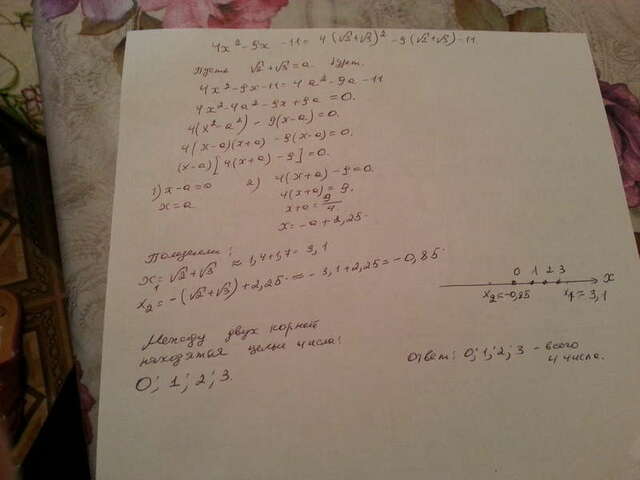 4x² - 9x - 11 = 4(√2+√3)² - 9(√2+√3) - 11.
Пусть √2+√3 = a. Будет.
4x² - 9x - 11 = 4a² - 9a - 11
4x² - 4a² - 9x + 9a = 0.
4(x² - a²) - 9(x - a) = 0.
4(x-a)(x+a) - 9(x-a) = 0.
(x-a)[4(x+a) - 9] = 0.
1) x - a = 0
x = a.
2) 4(x+a) - 9 = 0.
4(x+a) = 9.
x + a = 9/4.
x = -a + 2,25.
Получили:
x₁ = √2+√3 ≈ 1,4+1,7 = 3,1
x₂ = -(√2+√3) + 2,25 ≈ -3,1+2,25 = -0,85.
0 1 2 3 x
x₂=-0,85 x₁=3,1
Между двух корней
находятся целые числа:
0; 1; 2; 3.
Ответ: 0; 1; 2; 3 - всего
4 числа.